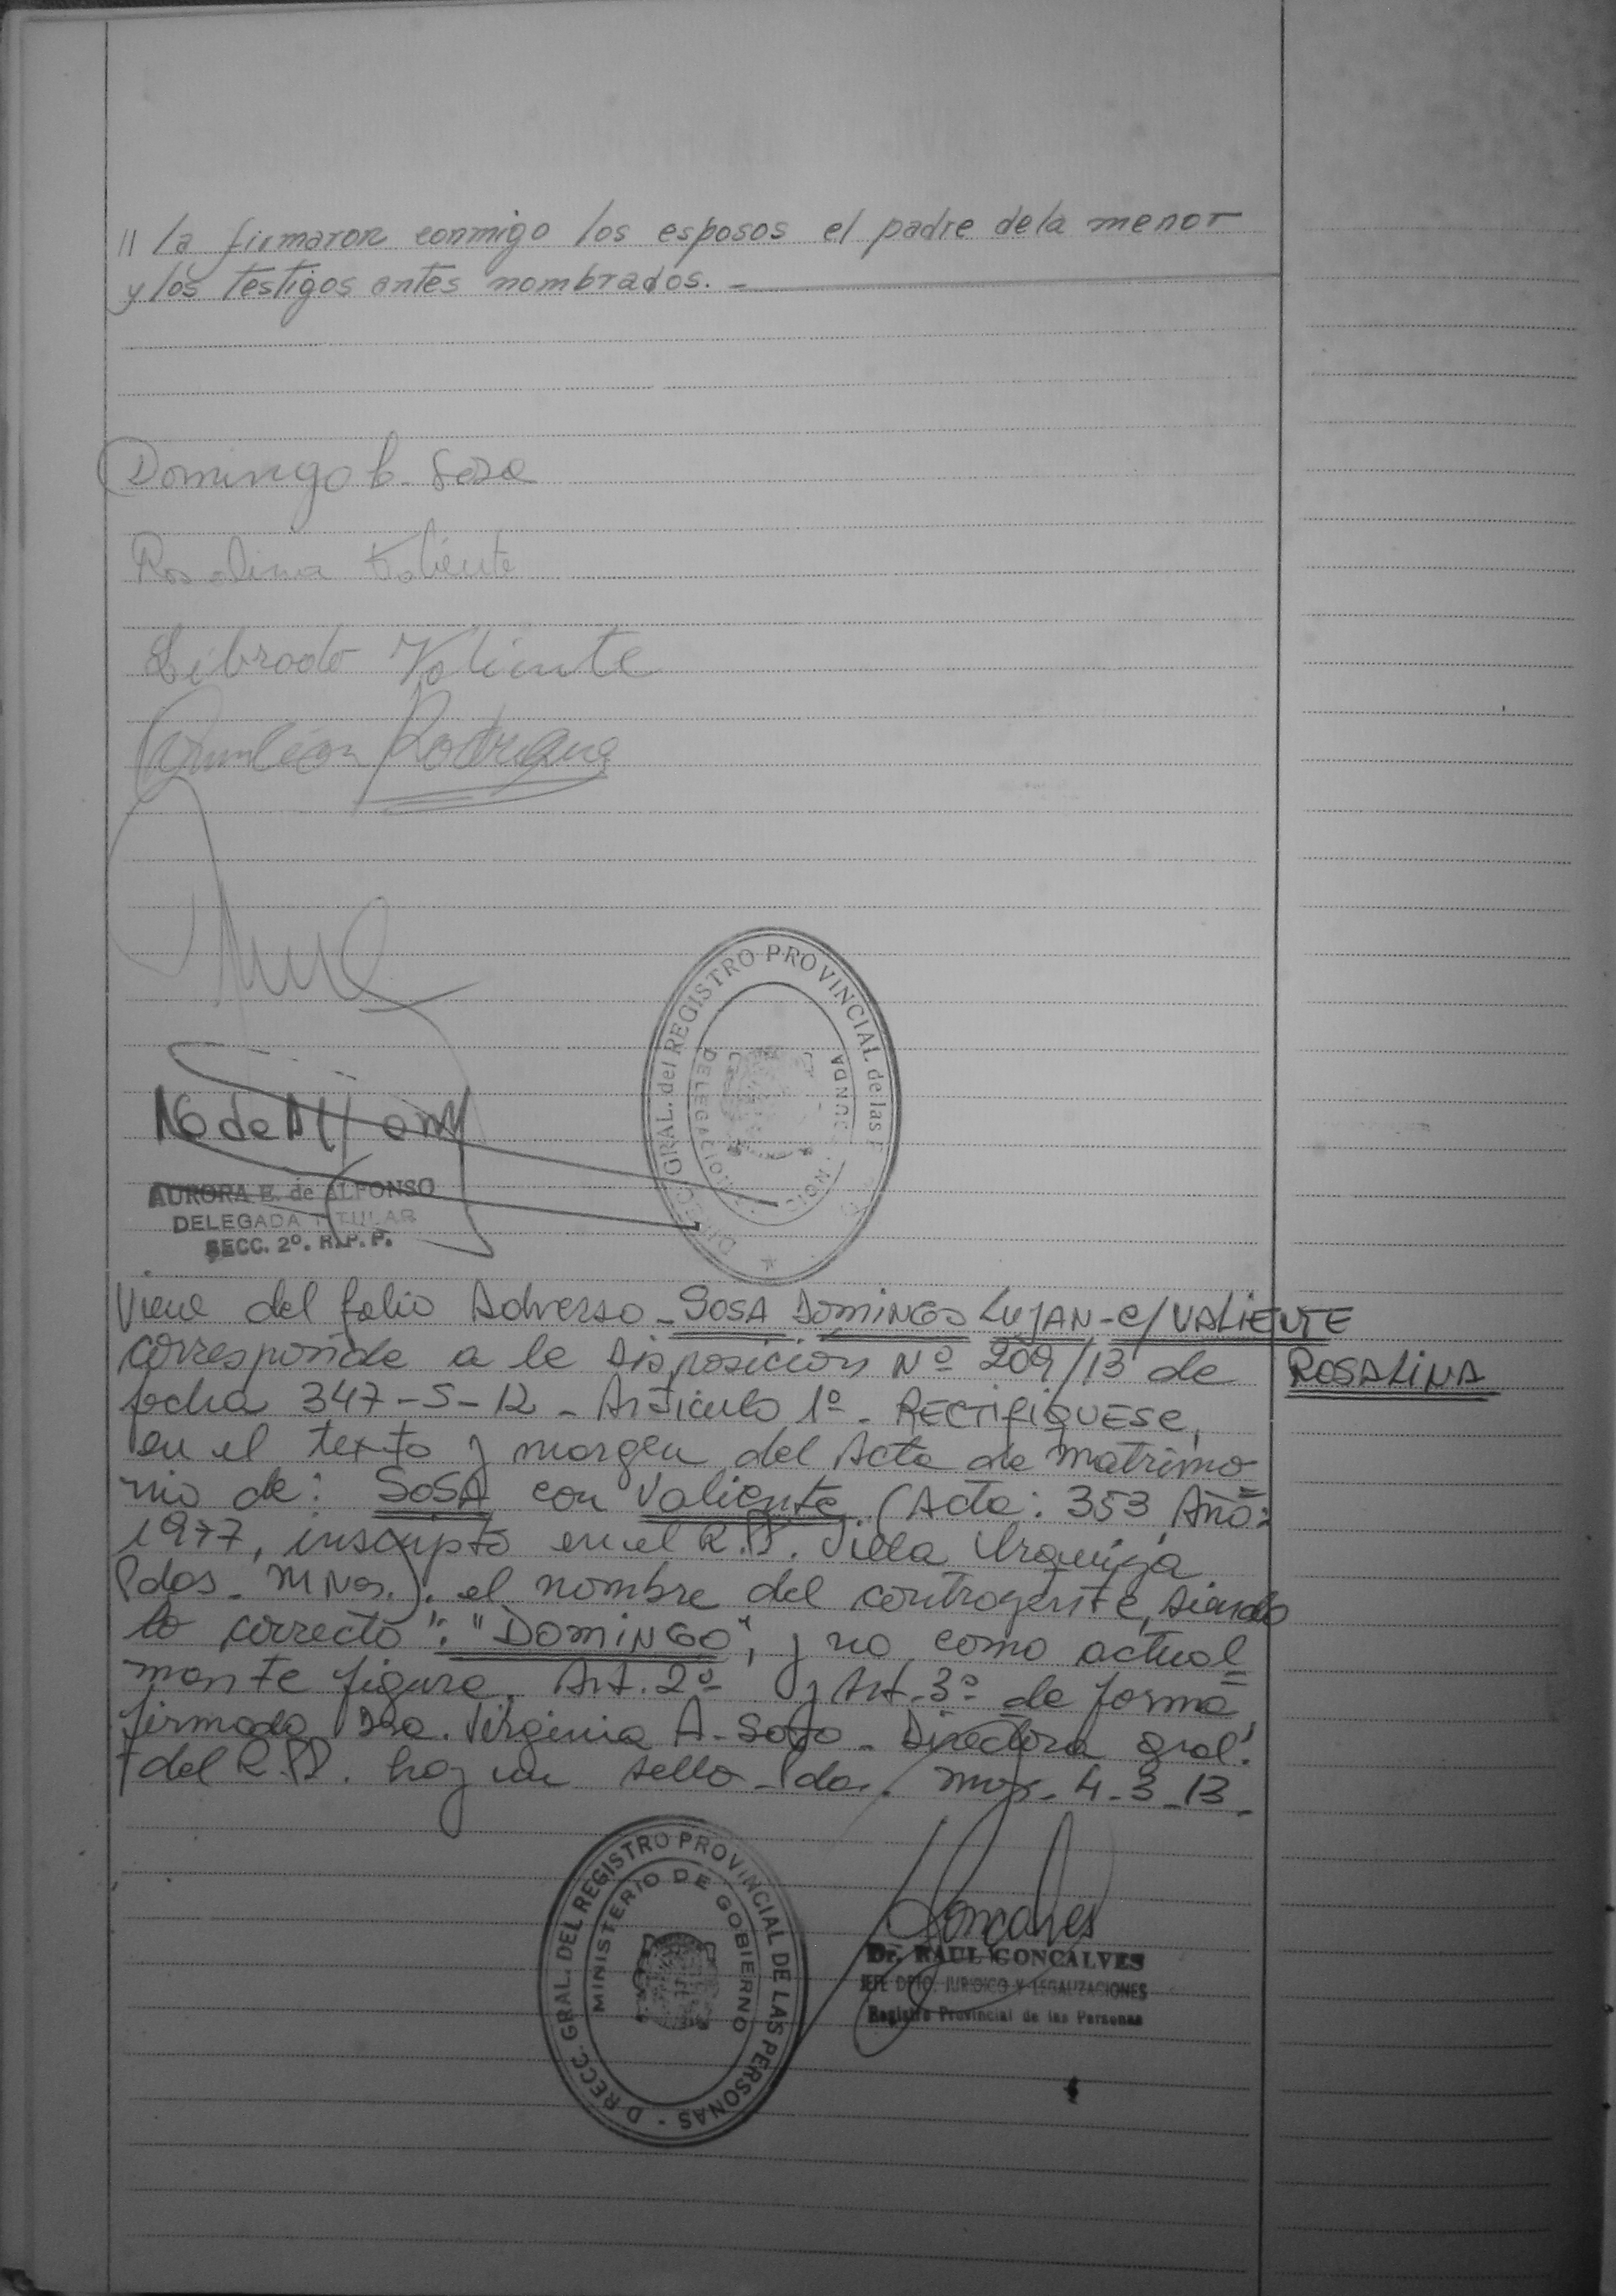 // la firmaron conmigo los esposos el padre de la menor
y los testigos antes nombrados. -
Domingo L. Sosa
Rosalina Valiente
Librado Valiente
Rodriguez
DIRECC. GRAL. del REGISTRO PROVINCIAL de las P
DELEGACION
AURORA E. de ALFONSO
DELEGADA TITULAR
SECC. 2º. R.P.P.
Viene del folio Adverso - SOSA DOMINGO LUJAN - C/ VALIENTE
ROSALINA
corresponde a la Disposición Nº 209/13 de
fecha 347-S-12 - Artículo 1º - RECTIFIQUESE,
en el texto y margen del Acta de Matrimo=
nio de: SOSA con Valiente (Acta: 353 Año:
1977, inscripto en el R.P. Villa Urquiza
Pdas. Mnes.). el nombre del contrayente, siendo
lo correcto ": "DOMINGO", y no como actual=
mente figura. Art. 2º y Art. 3º de forma
firmado Dra. Virginia A. Soto - Directora Gral.
del R.PP. hay un sello - Pdas. Mnes. 4-3-13.
DIRECC. GRAL. DEL REGISTRO PROVINCIAL DE LAS PERSONAS -
MINISTERIO DE GOBIERNO
Goncalves
Dr. RAUL GONCALVES
JEFE DPTO. JURIDICO Y LEGALIZACIONES
Registro Provincial de las Personas